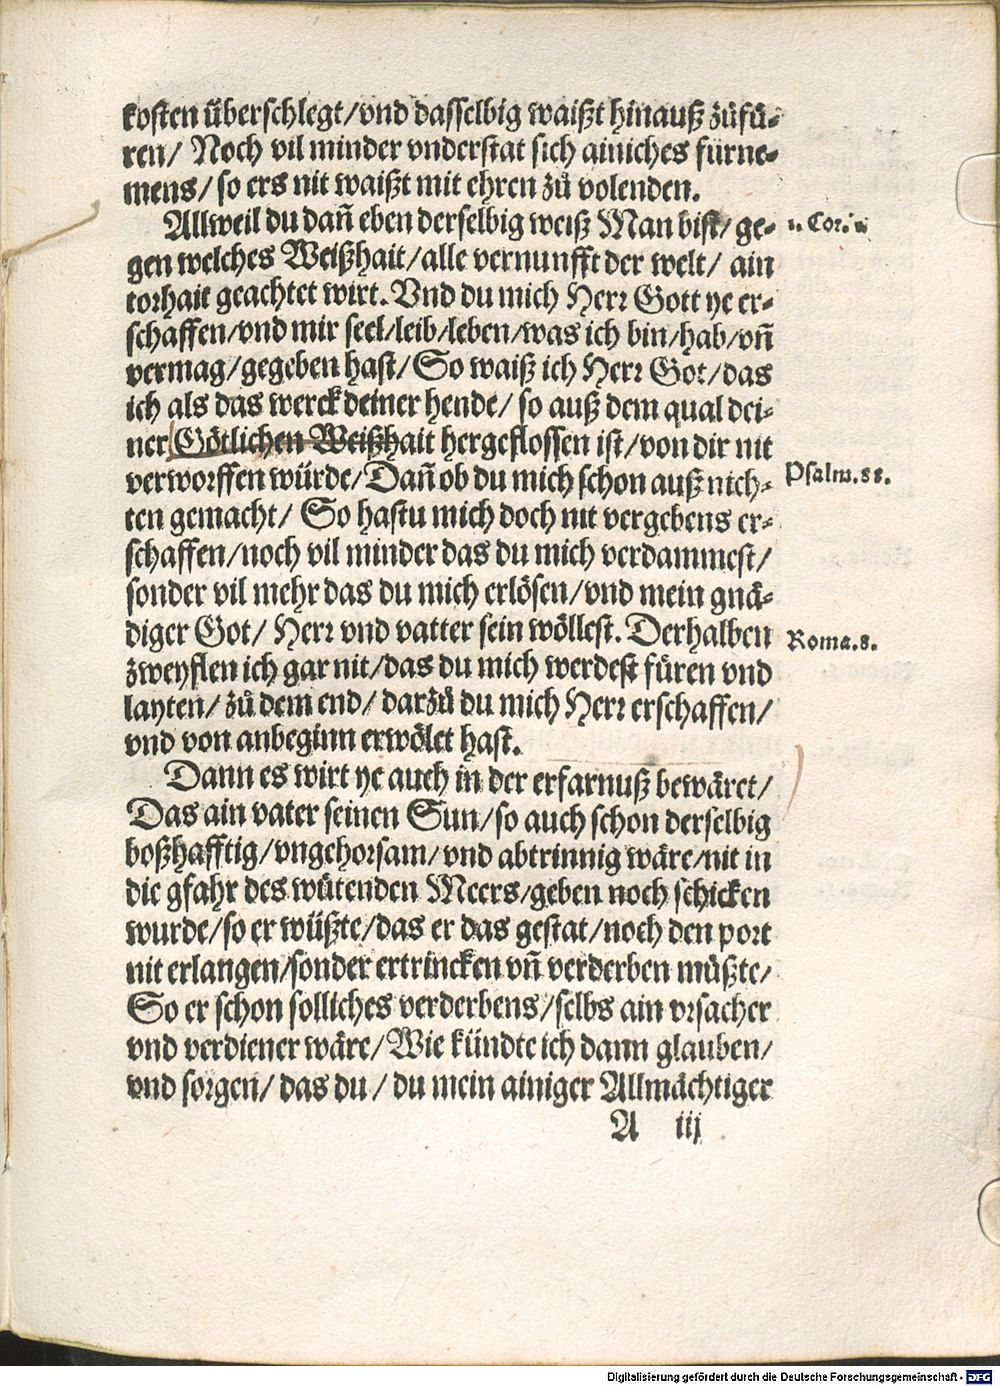 kosten überschlegt/vnd dasselbig waißt hinauß zůfü⸗
ren/ Noch vil minder vnderstat sich ainiches fürne⸗
mens/so ers nit waißt mit ehren zů volenden.
Allweil du dañ eben derselbig weiß Man bist/ge⸗
Cor.
gen welches Weißhait/alle vernunfft der welt/ ain
torhait geachtet wirt. Vnd du mich Herr Gott ye er⸗
schaffen/vnd mir seel/leib/leben/was ich bin/hab/vñ
vermag/gegeben hast/ So waiß ich Herr Got/das
ich als das werck deiner hende/ so auß dem qual dei⸗
ner Götlichen Weißhait hergeflossen ist/von dir nit
verworffen würde/ Dañ ob du mich schon auß nich⸗
Psalm.88.
ten gemacht/ So hastu mich doch nit vergebens er⸗
schaffen/noch vil minder das du mich verdammest/
sonder vil mehr das du mich erlösen/vnd mein gnä⸗
diger Got/ Herr vnd vatter sein wöllest. Derhalben
Roma.8.
zweyflen ich gar nit/das du mich werdest füren vnd
layten/ zů dem end/ darzů du mich Herr erschaffen/
vnd von anbeginn erwölet hast.
Dann es wirt ye auch in der erfarnuß bewäret/
Das ain vater seinen Sun/so auch schon derselbig
boßhafftig/vngehorsam/vnd abtrinnig wäre/nit in
die gfahr des wütenden Meers/geben noch schicken
wurde/so er wüßte/das er das gestat/noch den port
nit erlangen/sonder ertrincken vñ verderben müßte/
So er schon solliches verderbens/selbs ain vrsacher
vnd verdiener wäre/Wie kündte ich dann glauben/
vnd sorgen/ das du/ du mein ainiger Allmächtiger
A iij
Digitalisierung gefördert durch die Deutsche Forschungsgemeinschaft - DFG